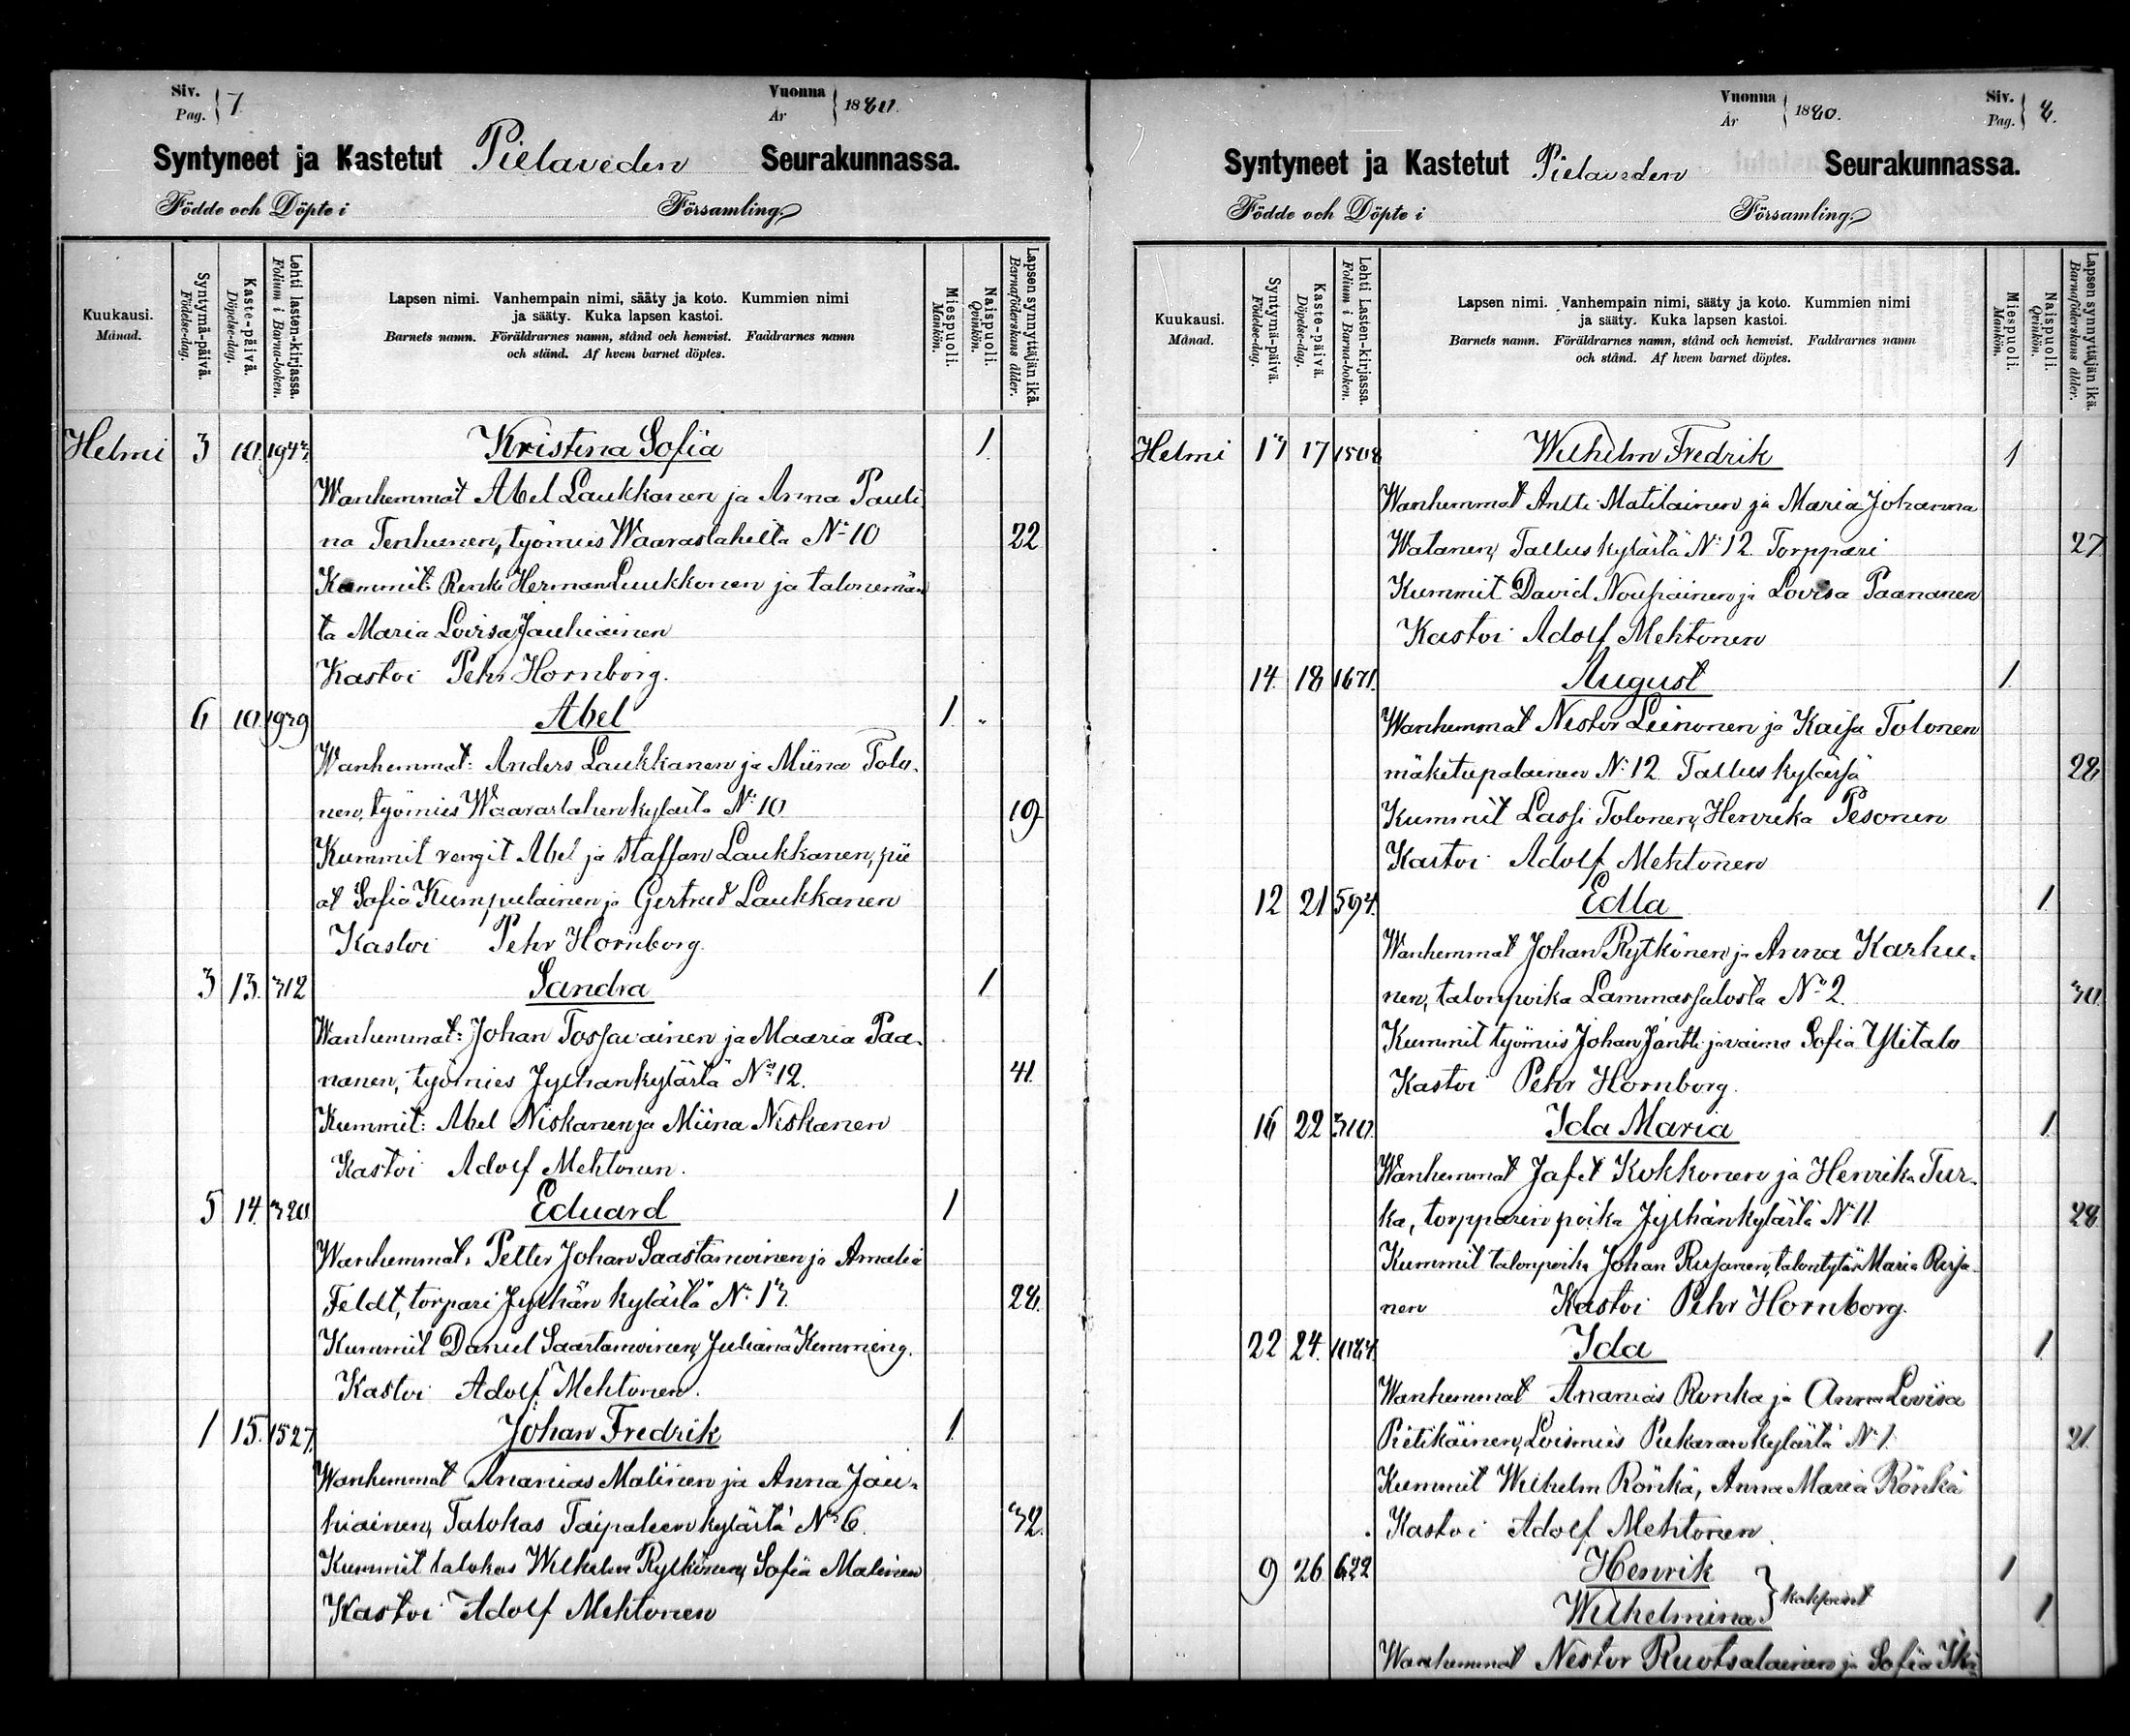 Siv.
Pag. 7.
Vuonna
År 1880.
Syntyneet ja Kastetut Pielaveden Seurakunnassa.
Födde och Döpte i Församling.
Kuukausi.
Månad.
Syntymä-päivä.
Födelse-dag.
Kaste-päivä.
Döpelse-dag.
Lehti lasten-kirjassa.
Folium i Barna-boken.
Lapsen nimi. Vanhempain nimi, sääty ja koto. Kummien nimi
ja sääty. Kuka lapsen kastoi.
Barnets namn. Föräldrarnes namn, stånd och hemvist. Faddrarnes namn
och stånd. Af hvem barnet döptes.
Miespuoli.
Mankön.
Naispuoli.
Qvinkön.
Lapsen synnyttäjän ikä.
Barnaföderskans ålder.
Helmi 3 10. Kristina Sofia 1.
Wanhemmat Abel Laukkanen ja Anna Pauli
na Tenhunen, työmies Waaraslahelta No 10 22
Kummit: Renki Herman Luukkonen ja talonemän
tä Maria Lovisa Jauhiainen
Kastoi Pehr Hornborg.
6 10. 1939 Abel 1.
Wanhemmat: Anders Laukkanen ja Miina Tolo-
nen, työmies Waaraslahen kylästä No 10 19
Kummit rengit Abel ja Staffan Laukkanen, pii
at Sofia Kumpulainen ja Gertrud Laukkanen
Kastoi Pehr Hornborg.
3 13. 312 Sandra 1
Wanhemmat: Johan Tossavainen ja Maaria Paa-
nanen, työmies Jylhänkylästä No 12. 41.
Kummit: Abel Niskanen ja Miina Niskanen
Kastoi Adolf Mehtonen.
5 14. 320 Eduard 1
Wanhemmat: Petter Johan Saastamoinen ja Amalia
Feldt, torpari Jylhän kylästä No 13. 28.
Kummit Daniel Saastamoinen, Juliana Kemming.
Kastoi Adolf Mehtonen.
1 15. 1527. Johan Fredrik 1.
Wanhemmat Ananias Malinen ja Anna Jau-
hiainen, Talokas Taipaleen kylästä No 6. 32.
Kummit talokas Wilhelm Rytkönen, Sofia Malinen
Kastoi Adolf Mehtonen
Vuonna
År 1880.
Siv.
Pag. 8.
Syntyneet ja Kastetut Pielaveden Seurakunnassa.
Födde och Döpte i Församling.
Kuukausi.
Månad.
Syntymä-päivä.
Födelse-dag.
Kaste-päivä.
Döpelse-dag.
Lehti Lasten-kirjassa.
Folium i Barna-boken.
Lapsen nimi. Vanhempain nimi, sääty ja koto. Kummien nimi
ja sääty. Kuka lapsen kastoi.
Barnets namn. Föräldrarnes namn, stånd och hemvist. Faddrarnes namn
och stånd. Af hvem barnet döptes.
Miespuoli.
Mankön.
Naispuoli.
Qvinkön.
Lapsen synnyttäjän ikä.
Barnaföderskans ålder.
Helmi 13 17 1508 Wilhelm Fredrik 1
Wanhemmat Antti Matilainen ja Maria Johanna
Watanen, Tallus kylästä No 12. Torppari 27.
Kummit David Nousiainen ja Lovisa Paananen
Kastoi Adolf Mehtonen
14. 18 1671. August 1.
Wanhemmat Nestor Leinonen ja Kaisa Tolonen
mäkitupalainen No 12 Tallus kylässä 28
Kummit Lassi Tolonen, Henrika Pesonen
Kastoi Adolf Mehtonen
12 21 594. Edla 1.
Wanhemmat Johan Rytkönen ja Anna Karhu-
nen, talonpoika Lammassalosta No 2. 30.
Kummit työmies Johan Jäntti ja vaimo Sofia Ylitalo
Kastoi Pehr Hornborg.
16 22 310. Ida Maria 1.
Wanhemmat Jafet Kokkonen ja Henrika Tur-
ka, torpparin poika Jylhänkylästä No 11. 28
Kummit talonpoika Johan Rusanen, talontytär Maria Rusa-
nen Kastoi Pehr Hornborg.
22 24. Ida 1.
Wanhemmat Ananias Ronka ja Anna Lovisa
Pietikäinen, Loismies Pukaran kylästä No 1. 21.
Kummit Wilhelm Rönkä, Anna Maria Rönkä
Kastoi Adolf Mehtonen.
9 26 622 Henrik 1
Wilhelmina } kaksoiset 1
Wanhemmat Nestor Ruotsalainen ja Sofia